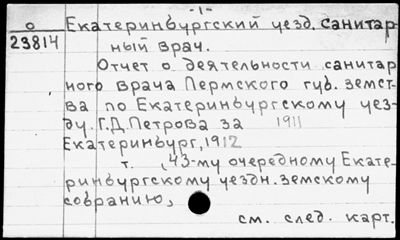 -1-
о Екатеринбургский уезд. санитар-
23814 ный врач.
Отчет о деятельности санитар-
ного врача Пермского губ. земст-
ва по Екатеринбургскому уез-
ду. Г.Д.Петрова за 1911
Екатеринбург, 1912
т. , 43-му очередному Екате-
ринбургскому уездн. земскому
собранию,
см. след. карт.